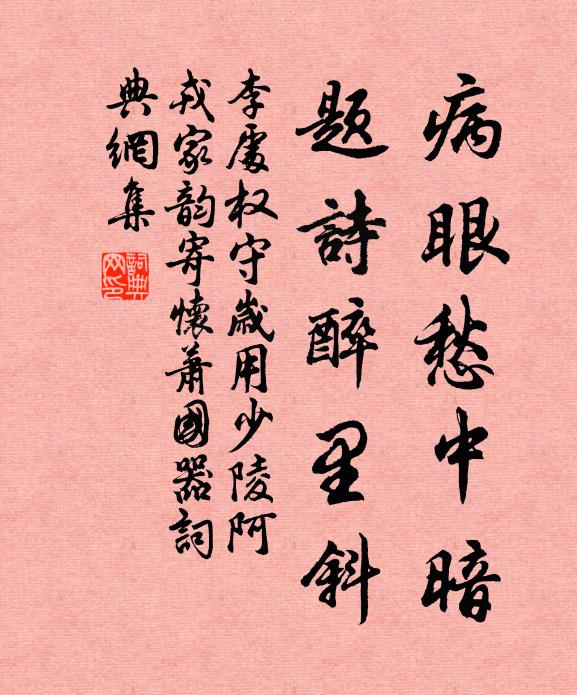 病眼愁中暗
題詩醉里斜
李處權守歲用少陵阿
戎家韵寄懷蕭國器詞
典網集
詞典網印